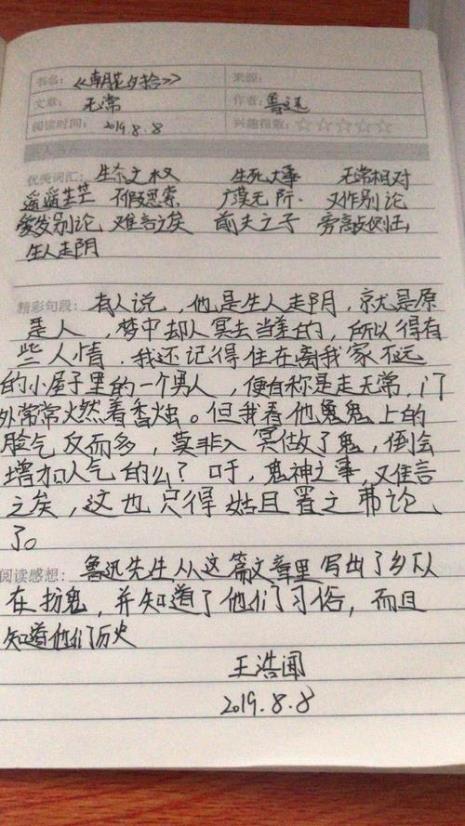 书名：《朝花夕拾》 来源：
文章：无常 作者：鲁迅
阅读时间：2019.8.8 兴趣指数：☆☆☆☆☆
优美词汇：生杀之权 生死大事 无常相对
遥遥茫茫 不假思索 广漠无所 又作别论
爱发别论 难言之矣 前夫之子 旁敲侧击
生人走阴
精彩句段：有人说，他是生人走阴，就是原
是人，梦中却入冥去当差的，所以得有
些人情．我还记得住在离我家不远
的小屋子里的一个男人，便自称是走无常，门
外常常火燃着香烛。但我看他鬼鬼上的
脸气反而多，莫非入冥做了鬼，倒会
增加人气的么？吁，鬼神之事，又难言
之矣，这也只得姑且置之弗论、
了。
阅读感想：鲁迅先生从这篇文章里写出了乡下人
在扮鬼，并知道了他们习俗，而且
知道他们历史
王浩闻
2019.8.8